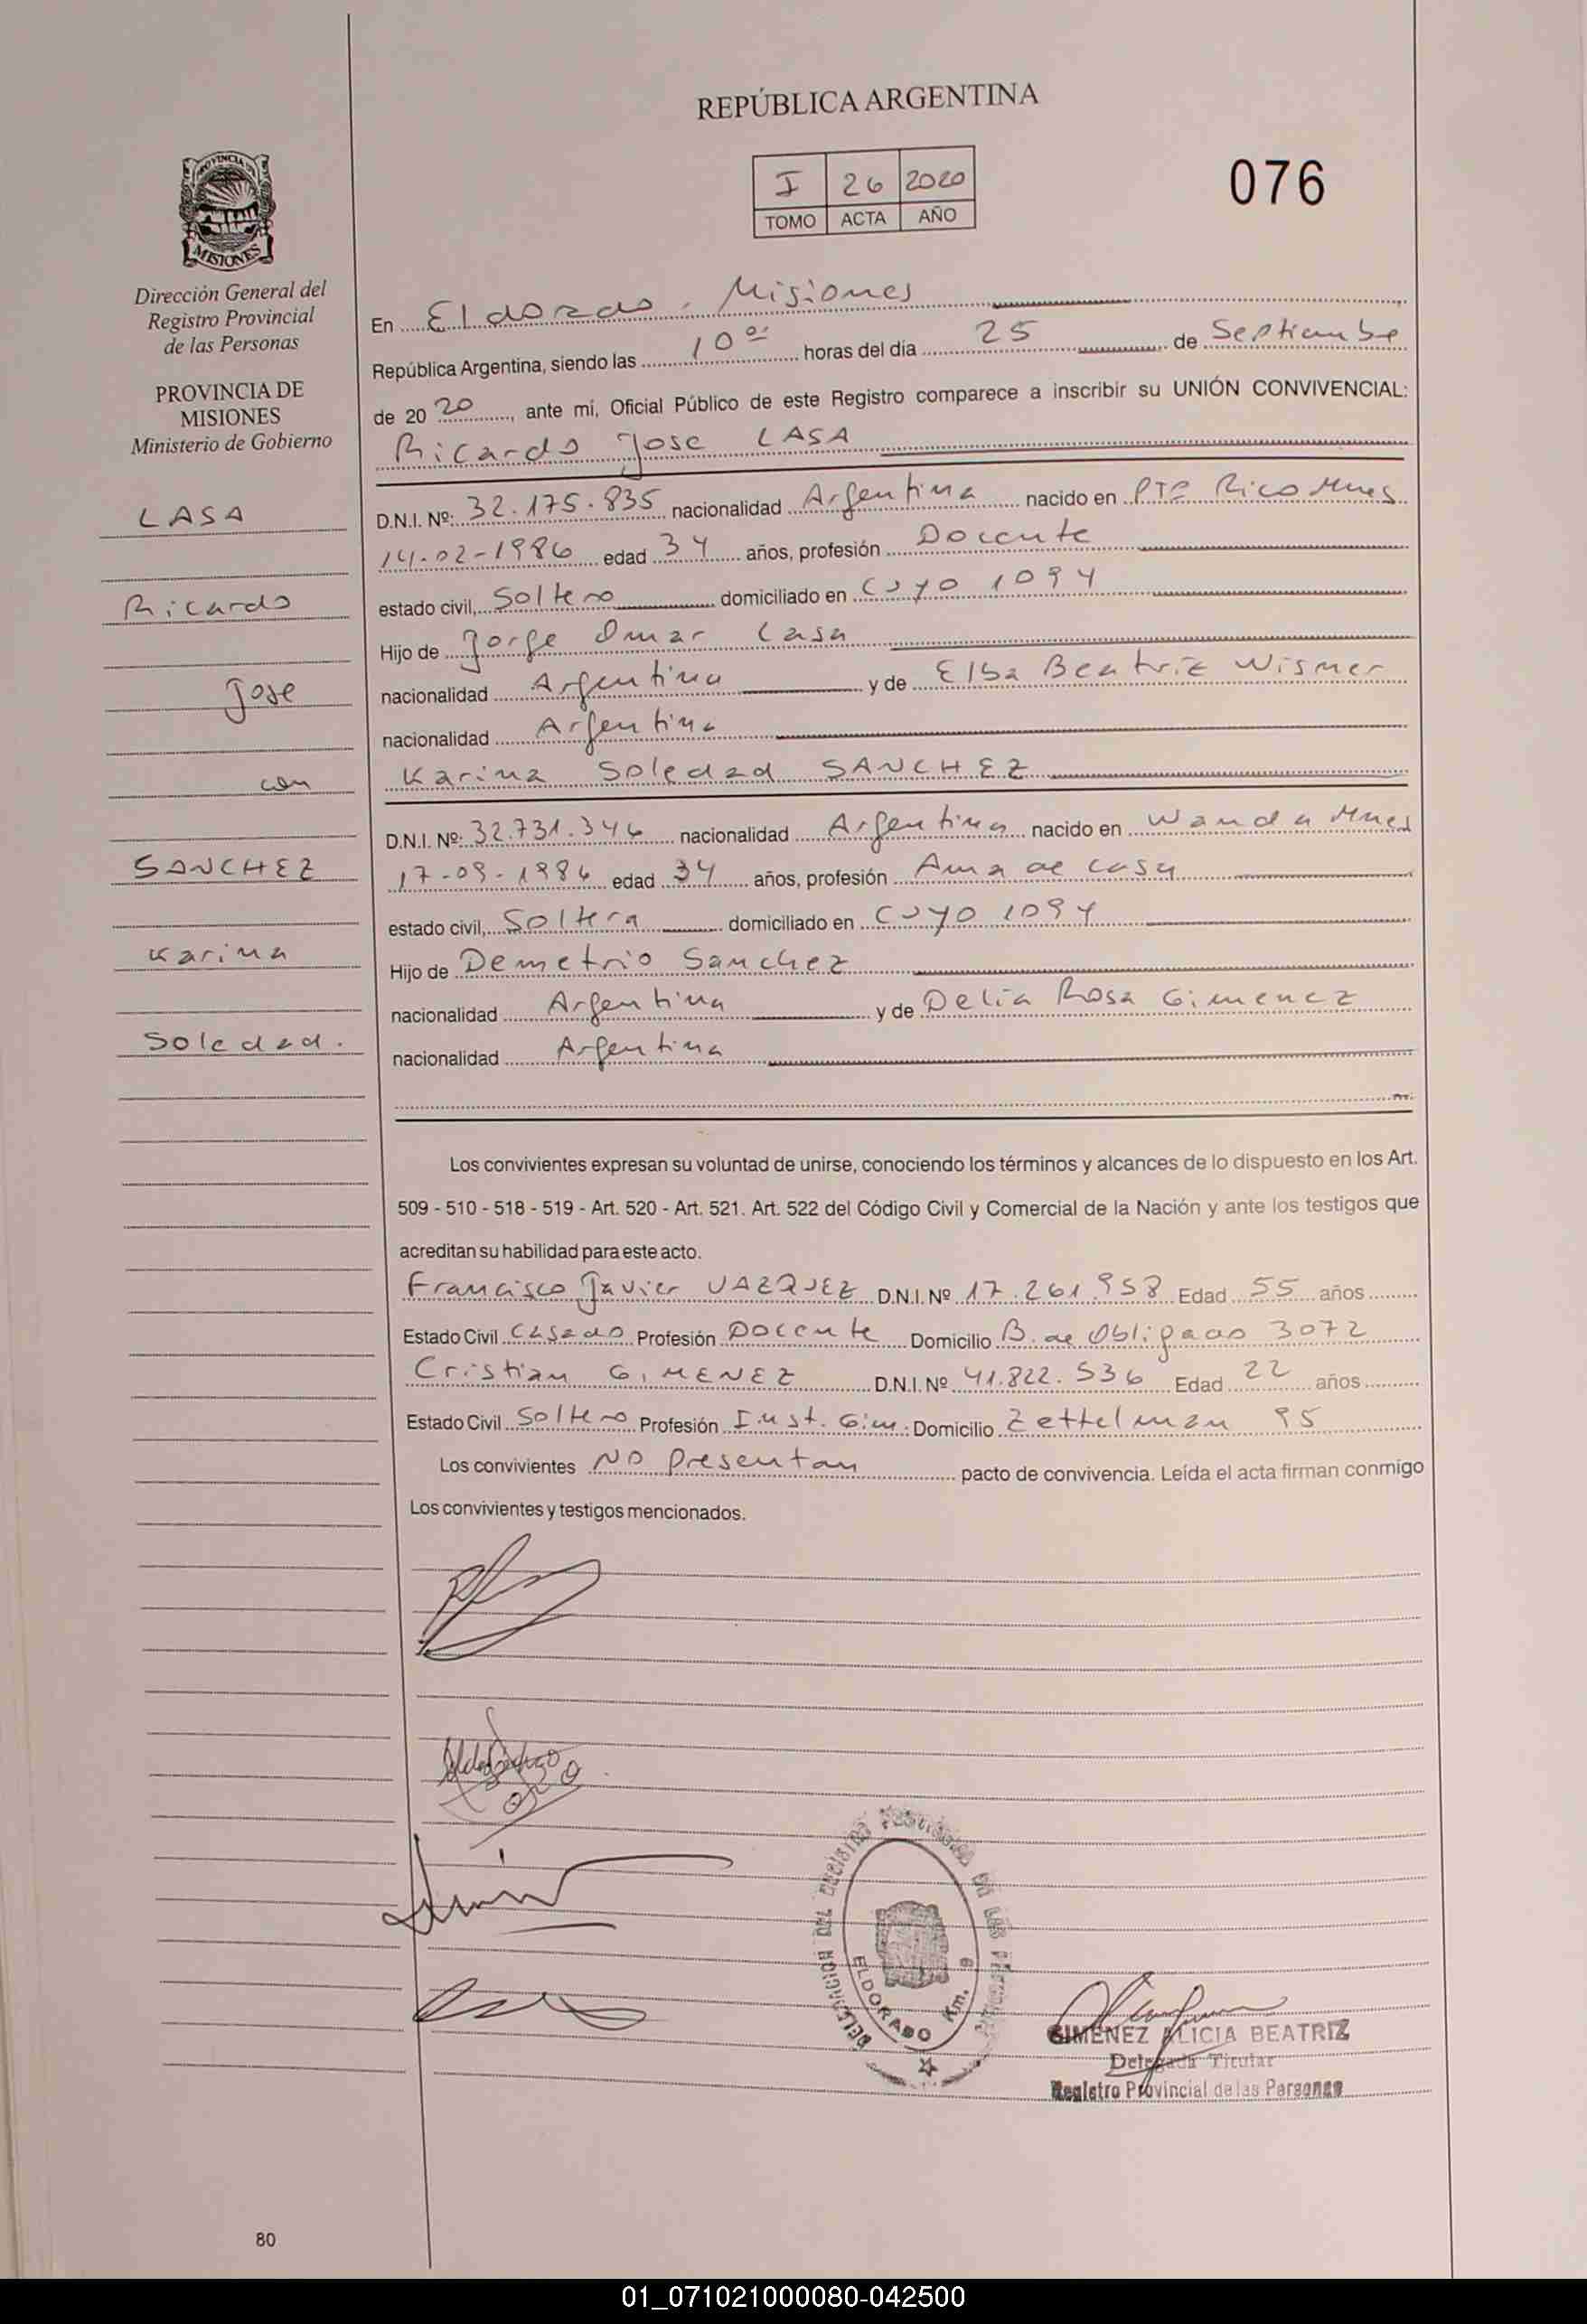 REPÚBLICA ARGENTINA
I 26 2020
TOMO ACTA AÑO
076
PROVINCIA DE
MISIONES
Dirección General del
Registro Provincial
de las Personas
PROVINCIA DE
MISIONES
Ministerio de Gobierno
LASA
Ricardo
Jose
con
SANCHEZ
Karina
Soledad.
En Eldorado, Misiones
República Argentina, siendo las 10°° horas del día 25 de Septiembre
de 20 20, ante mí, Oficial Público de este Registro comparece a inscribir su UNIÓN CONVIVENCIAL:
Ricardo Jose LASA
D.N.I. Nº: 32.175.835 nacionalidad Argentina nacido en PTO Rico Mnes
14-02-1986 edad 34 años, profesión Docente
estado civil, Soltero domiciliado en Cuyo 1094
Hijo de Jorge Omar Lasa
nacionalidad Argentina y de Elba Beatriz Wismer
nacionalidad Argentina
Karina Soledad SANCHEZ
D.N.I. Nº: 32.731.346 nacionalidad Argentina nacido en Wanda Mnes
17-09-1986 edad 34 años, profesión Ama de casa
estado civil, Soltera domiciliado en Cuyo 1094
Hijo de Demetrio Sanchez
nacionalidad Argentina y de Delia Rosa Gimenez
nacionalidad Argentina
Los convivientes expresan su voluntad de unirse, conociendo los términos y alcances de lo dispuesto en los Art.
509 - 510 - 518 - 519 - Art. 520 - Art. 521. Art. 522 del Código Civil y Comercial de la Nación y ante los testigos que
acreditan su habilidad para este acto.
Francisco Javier VAZQUEZ D.N.I. Nº 17.261.958 Edad 55 años
Estado Civil Casado Profesión Docente Domicilio B. de Obligado 3072
Cristian GIMENEZ D.N.I. Nº 41.822.536 Edad 22 años
Estado Civil Soltero Profesión Inst. Gim. Domicilio Zettelman 95
Los convivientes No Presentan pacto de convivencia. Leída el acta firman conmigo
Los convivientes y testigos mencionados.
ELDORADO Km. 9
GIMENEZ ALICIA BEATRIZ
Delegada Titular
Registro Provincial de las Personas
80
01_071021000080-042500